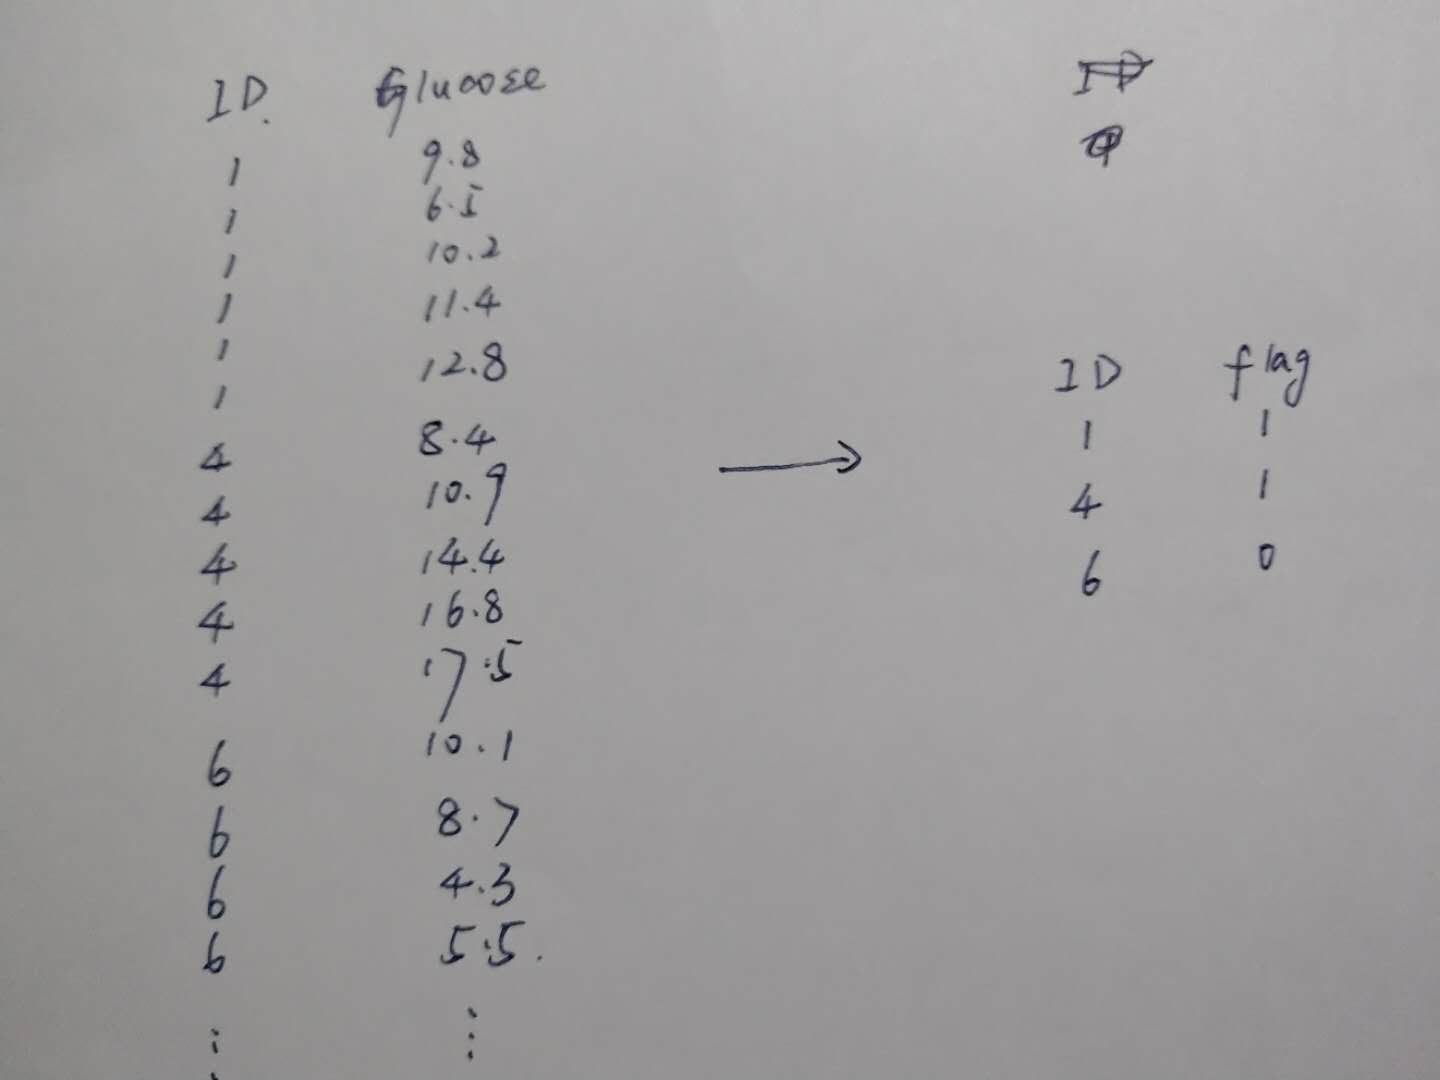 ID. Glucose
1 9.8
1 6.5
1 10.2
1 11.4
1 12.8
1
4 8.4
4 10.9
4 14.4
4 16.8
4 17.5
6 10.1
6 8.7
6 4.3
6 5.5.
⋮ ⋮
→
ID flag
1 1
4 1
6 0